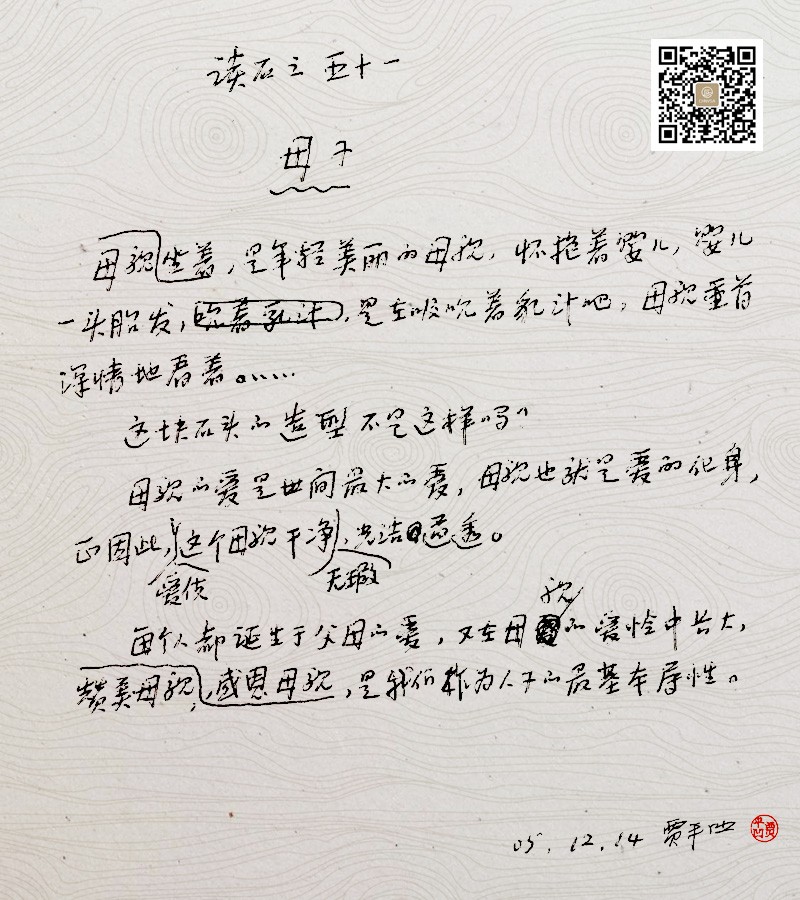 读石之五十一
母子
母亲坐着，是年轻美丽的母亲，怀抱着婴儿，婴儿
一头胎发，吮着乳汁，是在吸吮着乳汁吧，母亲垂首
深情地看着。……
这块石头的造型不是这样吗？
母亲的爱是世间最大的爱，母亲也就是爱的化身，
正因此，这个母亲干净，光洁 透。
无瑕
亲
每个人都诞生于父母的爱，又在母 的爱怜中长大，
赞美母亲，感恩母亲，是我们作为人子的最基本属性。
05.12.14 贾平凹
贾平凹